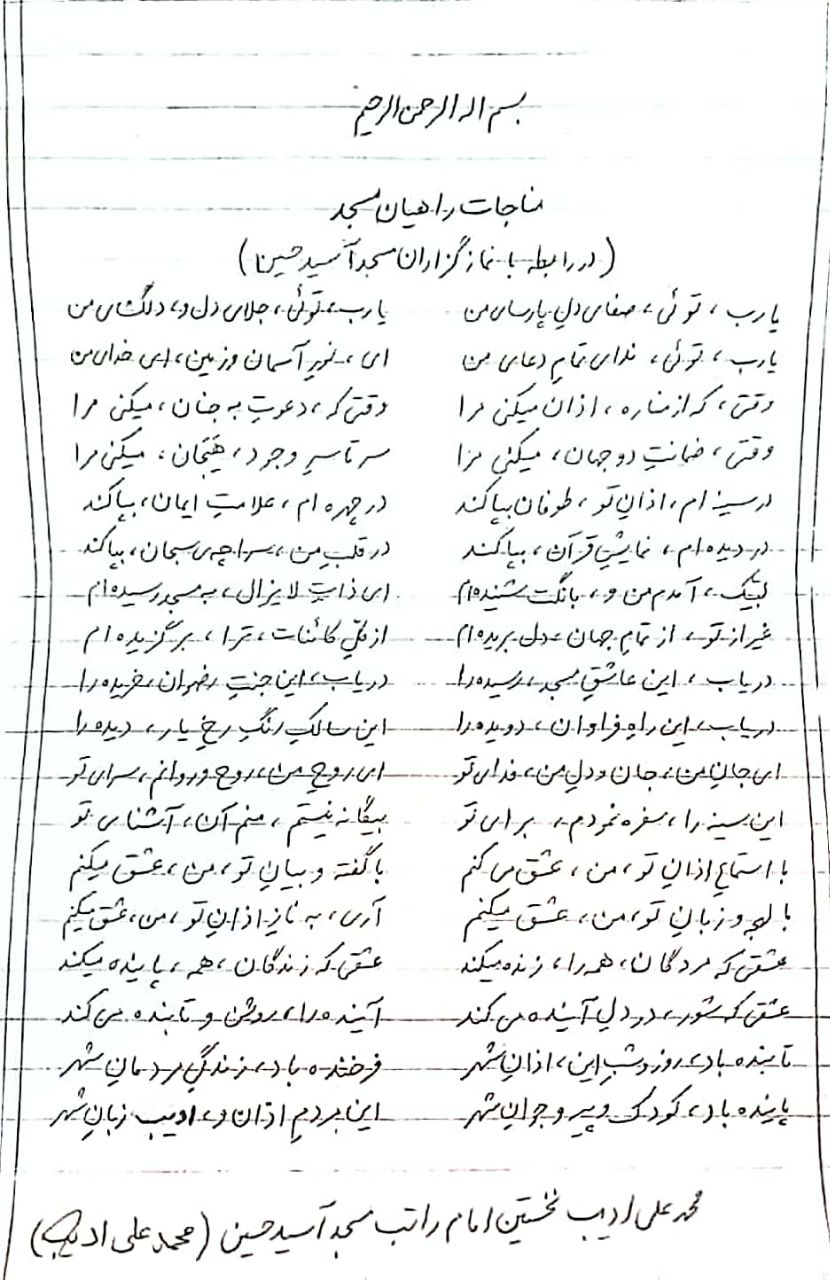 بسم اله الرحمن الرحیم
مناجات راهیان مسجد
(در رابطه با نمازگزاران مسجد آسید حسین)
یا رب، توئی، صفای دلِ پارسای من یا رب، توئی، جلای دل و، دلگشای من
یا رب، توئی، ندای تمامِ دعای من ای، نورِ آسمان و زمین، ای خدای من
وقتی، که از مناره، اذان میکنی مرا وقتی که، دعوتِ به جنان، میکنی مرا
وقتی، ضمانتِ دو جهان، میکنی مرا سرتاسرِ وجود، هَیَجان، میکنی مرا
در سینه ام، اذانِ تو، طوفان بپا کند در چهره ام، علامتِ ایمان، بپا کند
در دیده ام، نمایشِ قرآن، بپا کند در قلبِ من، سراچه‌ی سبحان، بپا کند
لبیّک، آمدم من و، بانگت شنیده ام ای ذاتِ لایزال، به مسجد رسیده ام
غیر از تو، از تمامِ جهان، دل بریده ام از کلِّ کائنات، ترا، برگزیده ام
دریاب، این عاشقِ مسجد، رسیده را دریاب، این جنتِ رضوان، خریده را
دریاب، این راهِ فراوان، دویده را این سالکِ رنگِ رخِ یار، دیده را
ای جانِ من، جان و دلِ من، فدای تو ای روحِ من، روح و روانم، سرای تو
این سینه را، سفره نمودم، برای تو بیگانه نیستم، منم آن، آشنای تو
با استماعِ اذانِ تو، من، عشق می کنم با گفته و بیانِ تو، من، عشق میکنم
با لهجه و زبانِ تو، من، عشق میکنم آری، به نازِ اذانِ تو، من، عشق میکنم
عشقی که مردگان، همه را، زنده میکند عشقی که زندگان، همه، پاینده میکند
عشقی که شور، در دلِ آینده می کند آینده را، روشن و تابنده می کند
تابنده باد، روز و شبِ این، اذانِ شهر فرخنده باد، زندگیِ مردمانِ شهر
پاینده باد، کودک و پیر و جوانِ شهر این مردمِ اذان و، ادیب زبانِ شهر
محمد علی ادیب نخستین امام راتب مسجد آسید حسین (محمد علی ادیب)